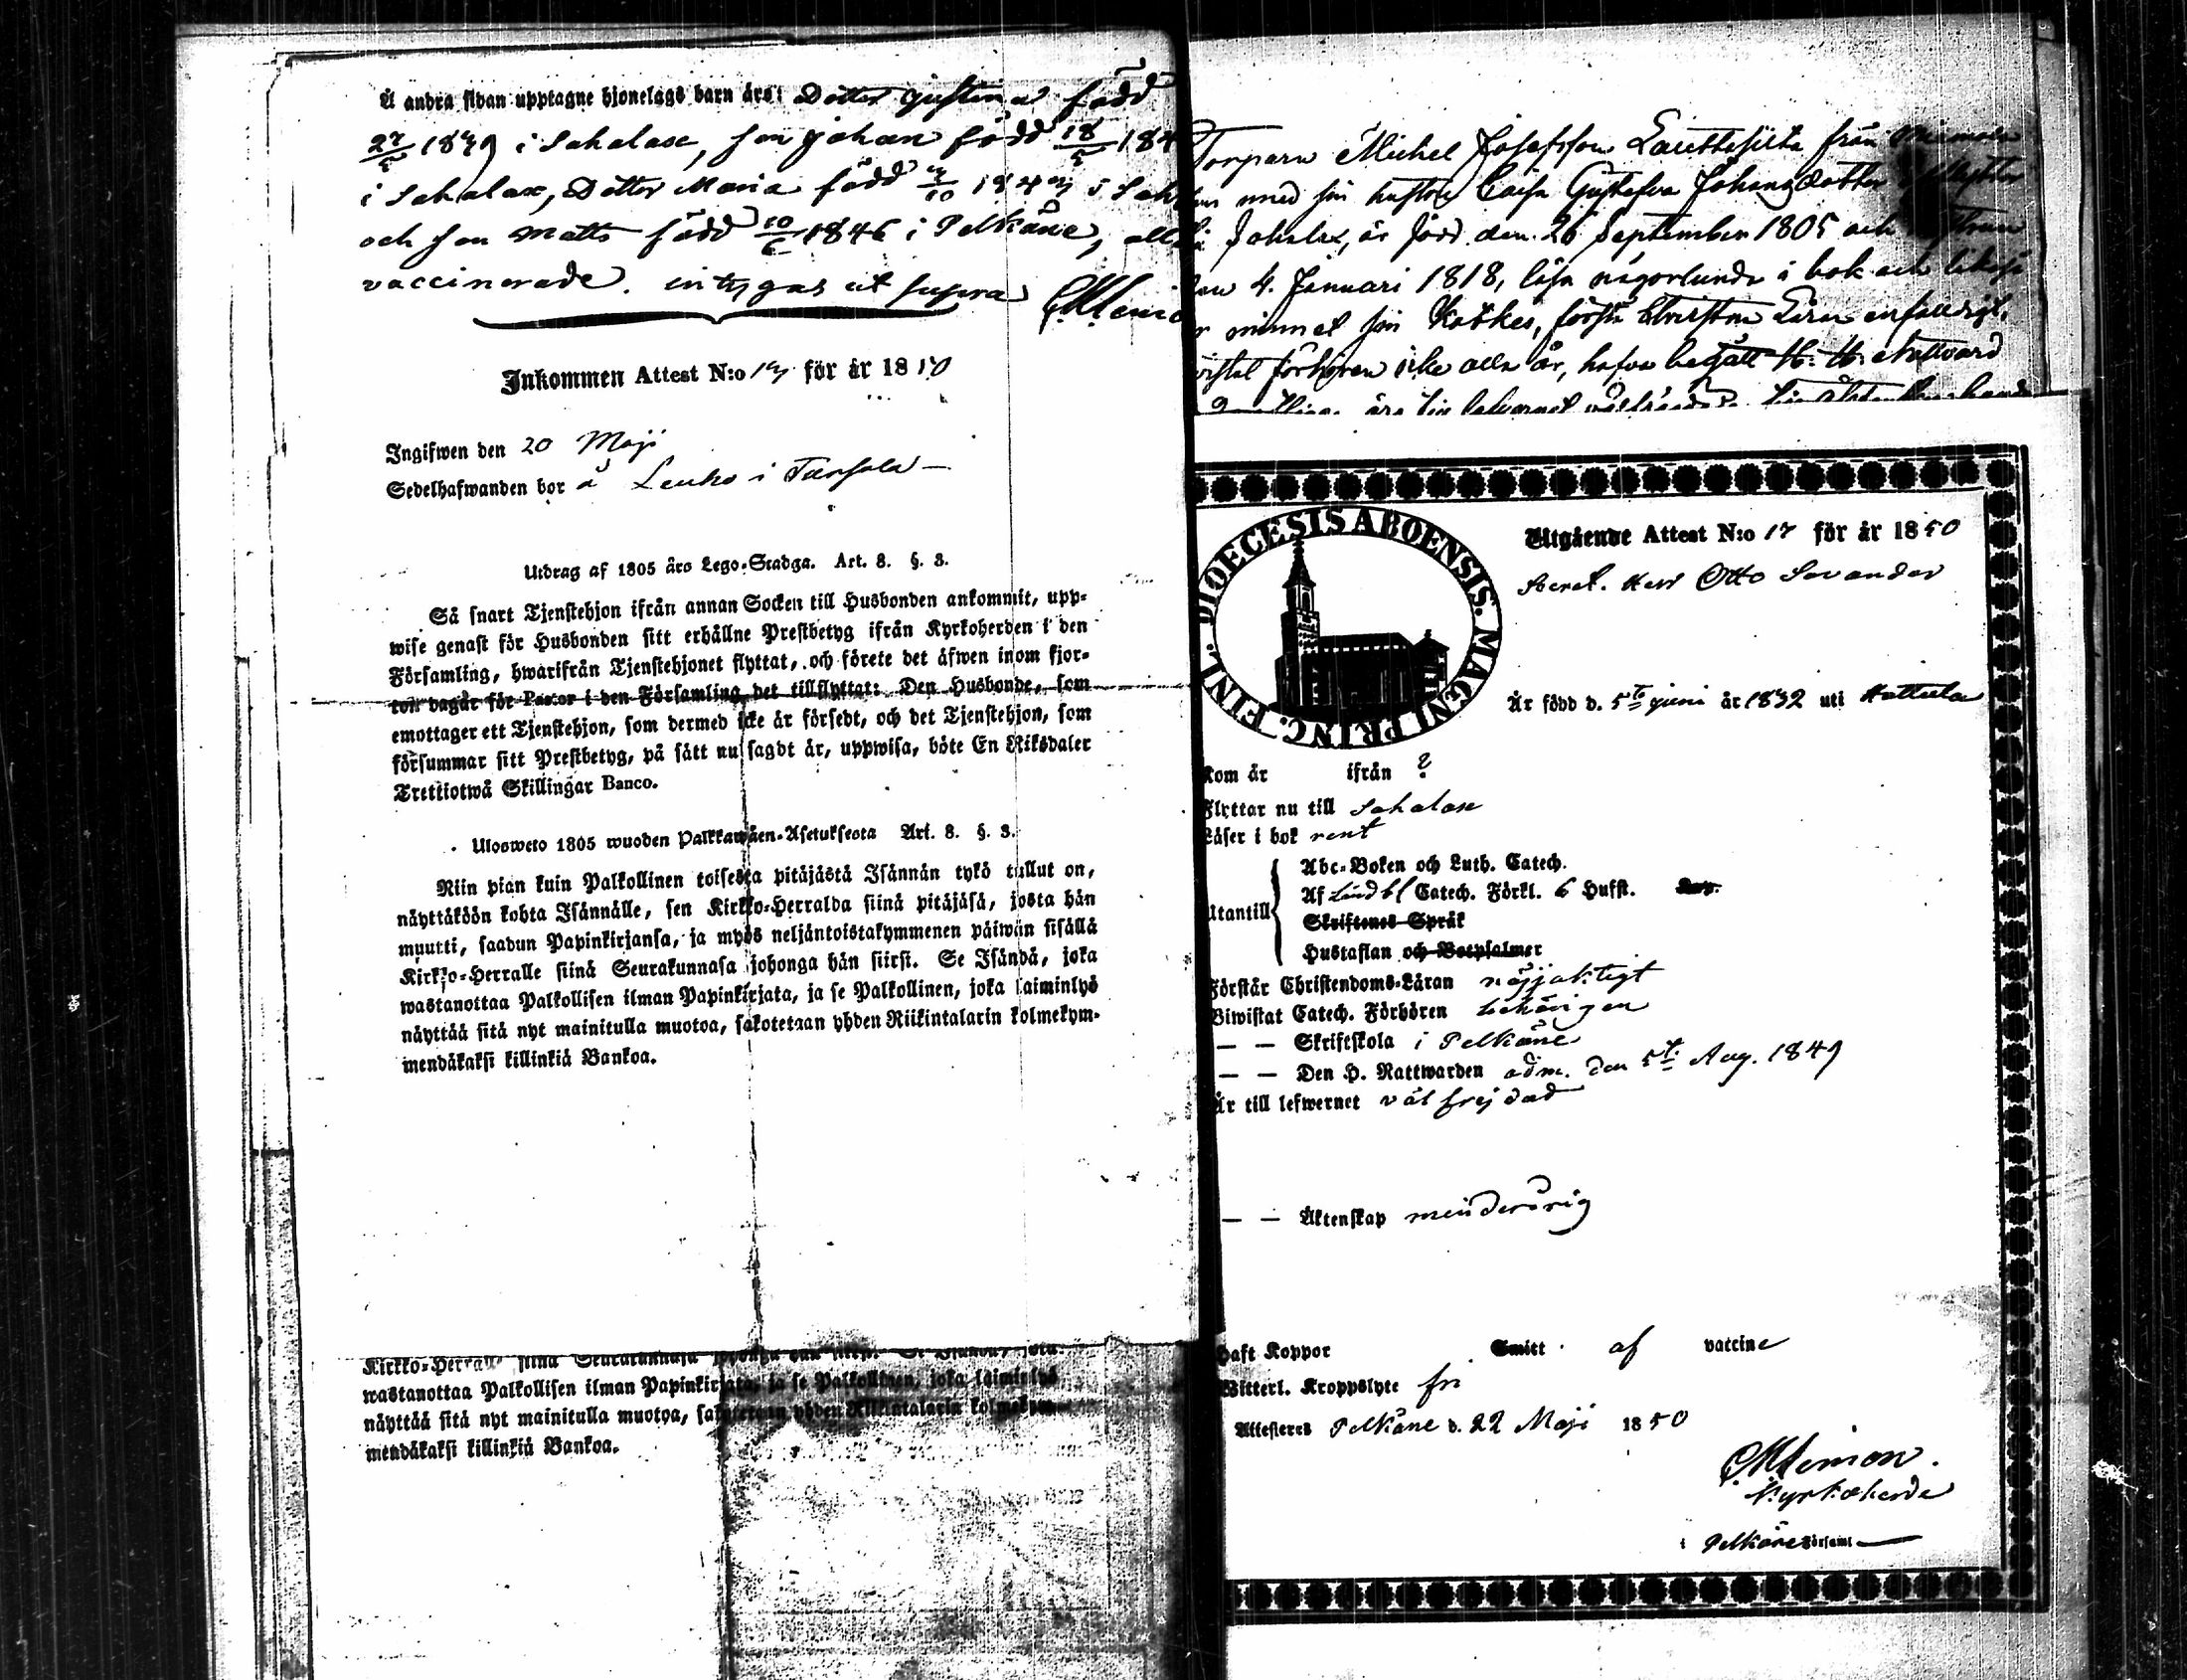 Å andra sidan upptagne hjonelags barn äro: Dotter Gustina född
27/5 1839 i Sahalax, son Johan född 18/5 184
i Sahalax, Dotter Maria född 3/10 1843 i Sah
och son Matts född 10/6 1846 i Pelkäne, alla
vaccinerade. intygas ut supra
Inkommen Attest N:o 13 för år 1850
Ingifwen den 20 Maji
Sedelhafwanden bor å Leuho i Tursola
Utdrag af 1805 års Lego-Stadga. Art. 8. §. 3.
Så snart Tjenstehjon ifrån annan Socken till Husbonden ankommit, upp-
wise genast för Husbonden sitt erhållne Prestbetyg ifrån Kyrkoherden i den
Församling, hwarifrån Tjenstehjonet flyttat, och förete det äfwen inom fjor-
ton dagar för Pastor i den Församling det tillflyttat: Den Husbonde, som
emottager ett Tjenstehjon, som dermed icke är försedt, och det Tjenstehjon, som
försummar sitt Prestbetyg, på sätt nu sagdt är, uppwisa, böte En Riksdaler
Trettiotwå Skillingar Banco.
Ulosweto 1805 wuoden Palkkawäen-Asetuksesta Art. 8. §. 3.
Niin pian kuin Palkollinen toisesta pitäjästä Isännän tykö tullut on,
näyttäköön kohta Isännälle, sen Kirkko-Herralda siinä pitäjäsä, josta hän
muutti, saadun Papinkirjansa, ja myös neljäntoistakymmenen päiwän sisällä
Kirkko-Herralle siinä Seurakunnasa johonga hän siirsi. Se Isändä, joka
wastanottaa Palkollisen ilman Papinkirjata, ja se Palkollinen, joka laiminlyö
näyttää sitä nyt mainitulla muotoa, sakotetaan yhden Riikintalarin kolmekym-
mendäkaksi killinkiä Bankoa.
Kirkko-Herralle siinä Seurakunnasa
wastanottaa Palkollisen ilman Papinkirjata, ja se Palkollinen, joka laiminlyö
näyttää sitä nyt mainitulla muotoa, sakotetaan yhden Riikintalarin kolmekym-
mendäkaksi killinkiä Bankoa.
Torparn Michel Josefsson från
med sin hustru Caisa Gustafva Johansdotter
Sahalax, är född den 26 September 1805 och hustrun
4. Januari 1818, läsa någorlunda i bok och
minnet sin förstå Christna Läran enfaldigt,
förhören icke alla år, hafva begått H. H. Nattvard
DIOECESIS ABOENSIS. MAGNI PRINC. FINL.
Utgående Attest N:o 17 för år 1850
Secret. Herr Otto Savander
Är född d. 5te juni år 1832 uti Hattula
Kom år ifrån ?
Flyttar nu till Sahalax
Läser i bok rent
Utantill
Abc-Boken och Luth. Catech.
Af Lindbl Catech. Förkl. 6 Hufst.
Skriftenes Språk
Hustaflan och Botpsalmer
Förstår Christendoms-Läran nöjjaktigt
Biwistat Catech. Förhören behörigen
— — Skriftskola i Pelkäne
— — Den H. Nattwarden adm. den 5te Aug. 1849
Är till lefwernet väl frejdad
— — Äktenskap minderårig
Haft Koppor Smitt af vaccine
Witterl. Kroppslyte fri
Attesteres Pelkäne d. 22 Maji 1850
Kyrkoherde
i Pelkäne församl